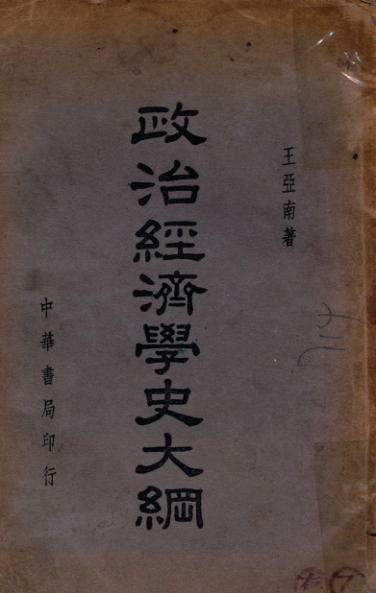 王亞南著
政治經濟學史大綱
中華書局印行